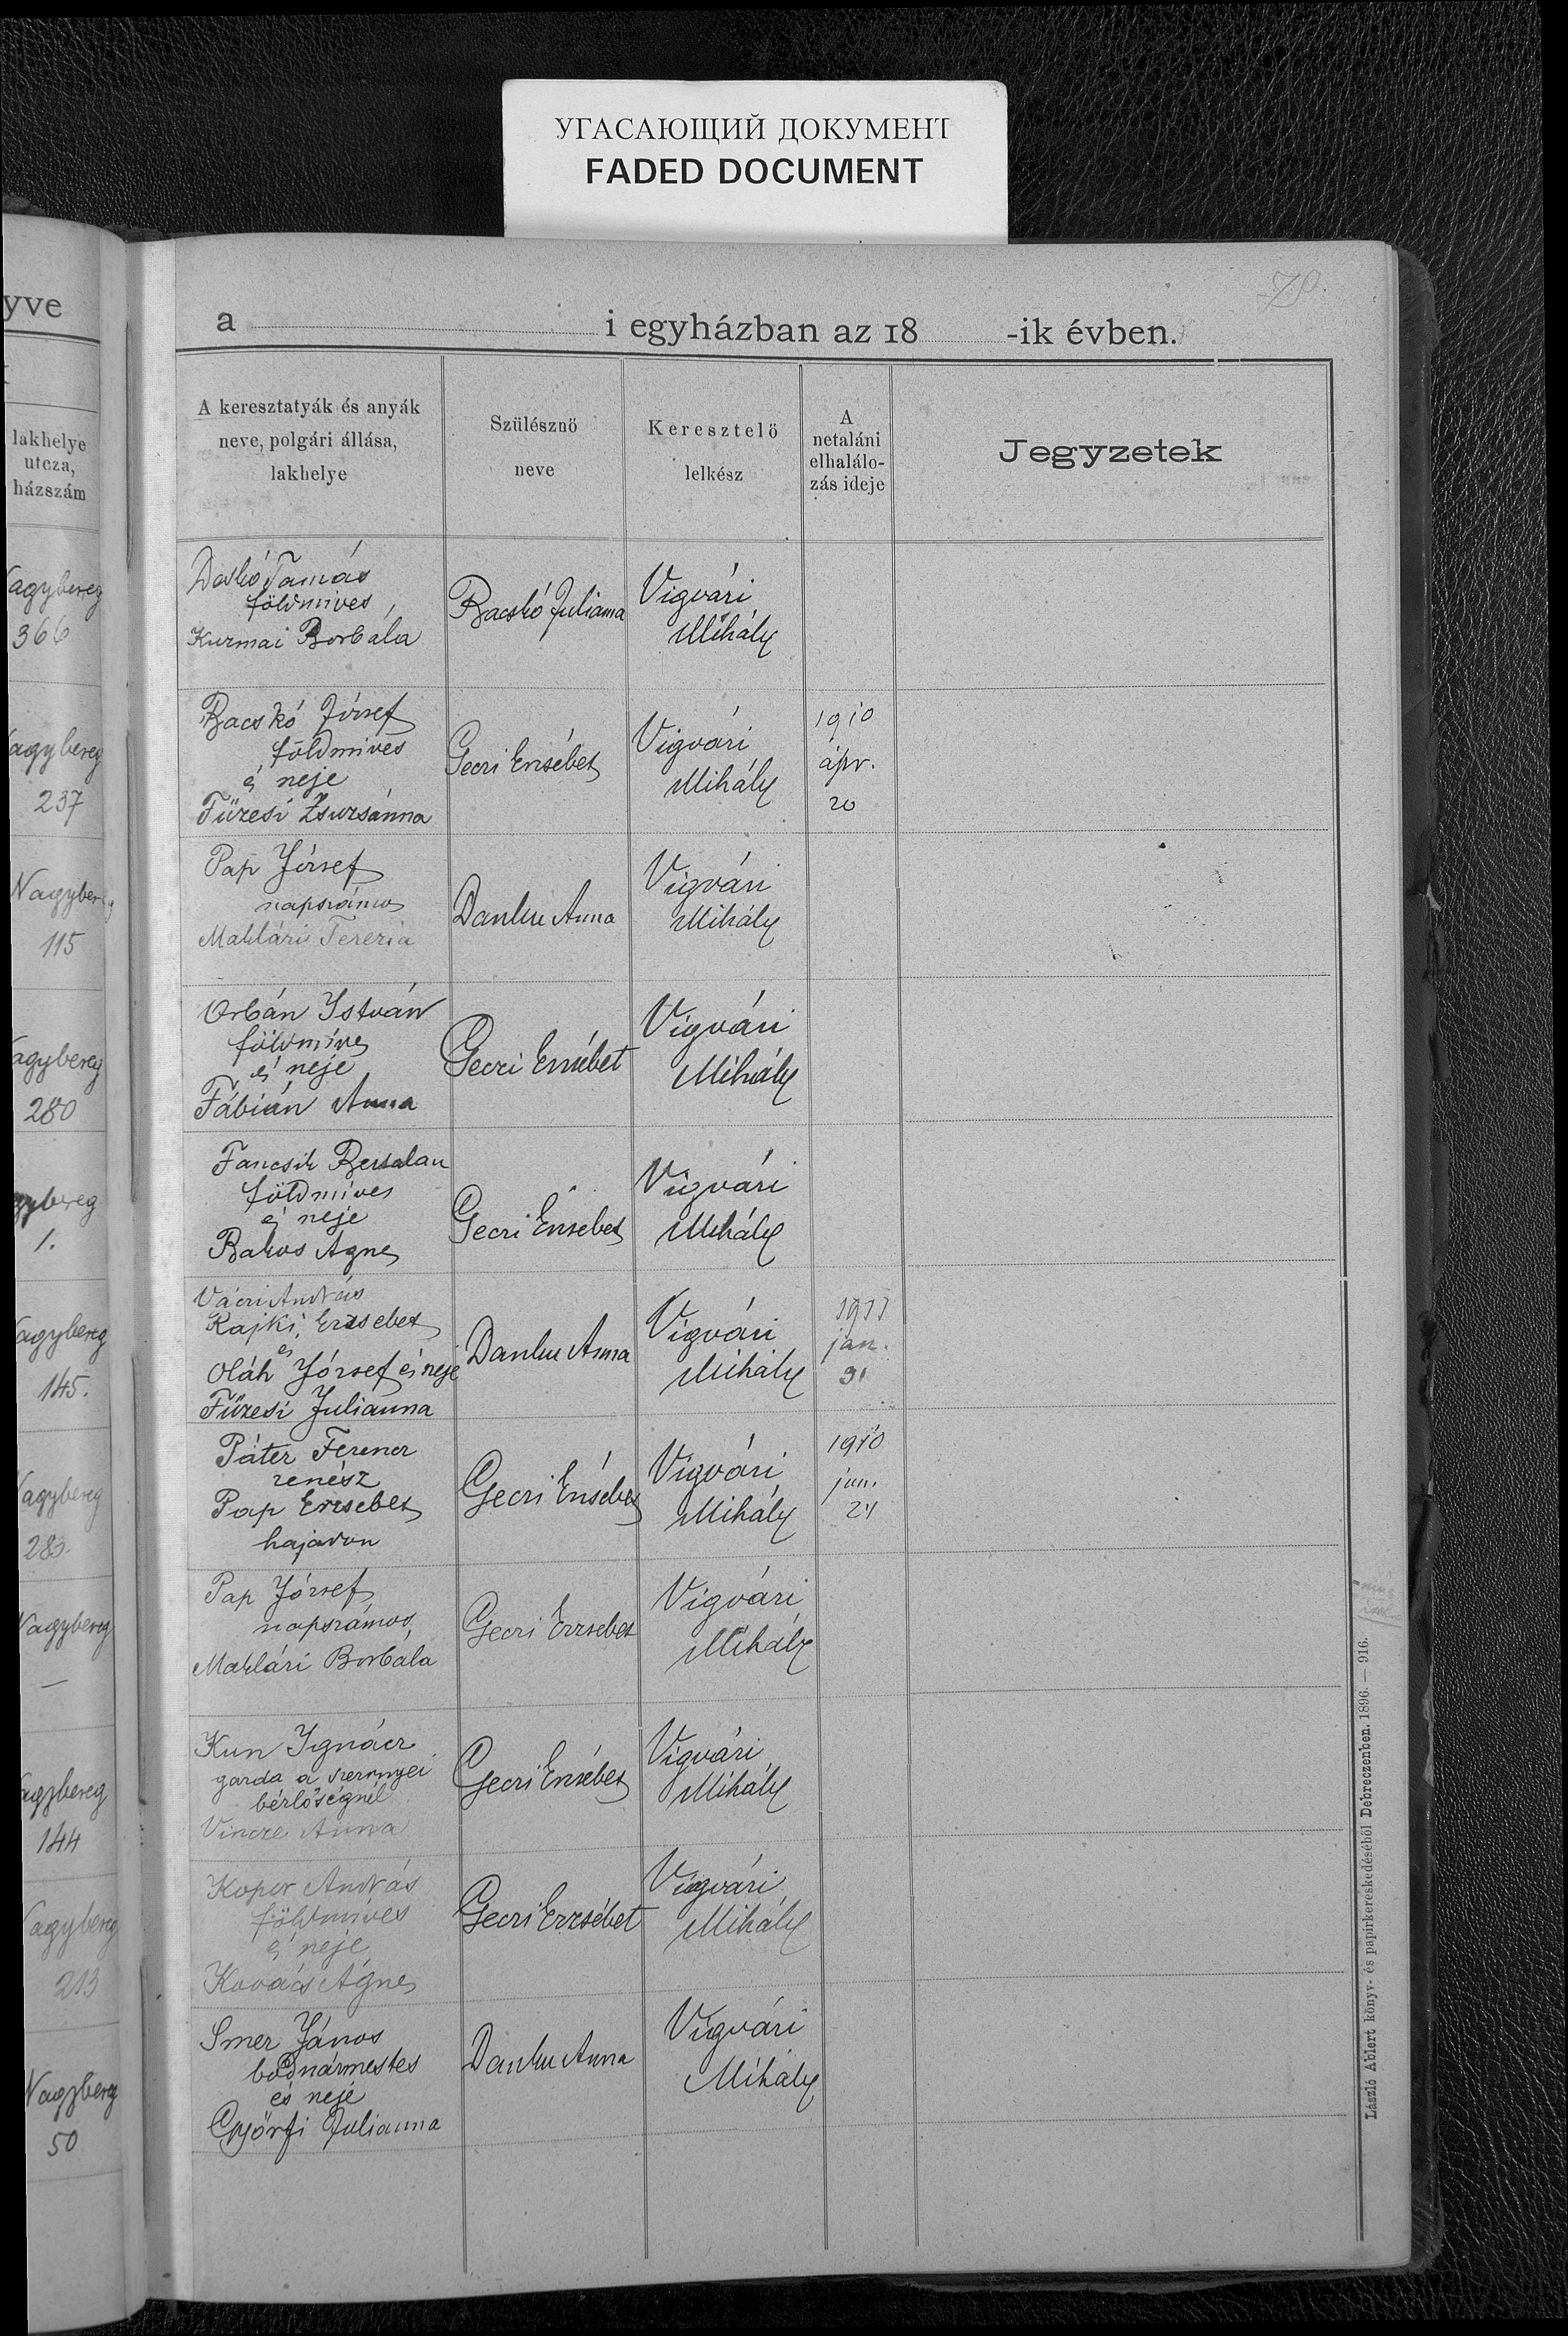 УГАСАЮЩИЙ ДОКУМЕНТ
FADED DOCUMENT
yve
78.
a i egyházban az 18 -ik évben.
lakhelye
utcza,
házszám
A keresztatyák és anyák
neve, polgári állása,
lakhelye
Szülésznő
neve
Keresztelő
lelkész
A
netaláni
elhalálo-
zás ideje
Jegyzetek
agybereg
366
Daskó Tamás
földmives
Kurmai Borbála
Bacskó Juliánna
Vigvári
Mihály
agybereg
237
Bacskó József
földmives
és neje
Füzesi Zsuzsánna
Geczi Erzsébet
Vigvári
Mihály
1910
ápr.
20
Nagybereg
115
Pap József
napszámos
Maklári Terézia
Danku Anna
Vigvári
Mihály
agybereg
280
Orbán István
földmíves
és neje
Fábián Anna
Geczi Erzsébet
Vigvári
Mihály
gybereg
1.
Fancsik Bertalan
földmíves
és neje
Bakos Ágnes
Geczi Erzsébet
Vigvári
Mihály
agybereg
145.
Váczi András
Kajki Erzsébet
és
Oláh József és neje
Füzesi Julianna
Danku Anna
Vigvári
Mihály
1911
jan.
31
agybereg
283.
Páter Ferencz
zenész
Pap Erzsébet
hajadon
Geczi Erzsébet
Vigvári
Mihály
1910
jun.
24
Nagybereg
—
Pap József
napszámos,
Maklári Borbála
Geczi Erzsébet
Vigvári
Mihály
agybereg
144
Kun Ignácz
garda a szernyei
bérlőségnél
Vincze Anna
Geczi Erzsébet
Vigvári
Mihály
agybereg
213
András
földmíves
és neje
Kovács Ágnes
Geczi Erzsébet
Vigvári
Mihály
Nagybereg
50
Smer János
bodnármester
és neje
Györfi Julianna
Danku Anna
Vigvári
Mihály
László Albert könyv- és papirkereskedéséből Debreczenben. 1896. — 916.